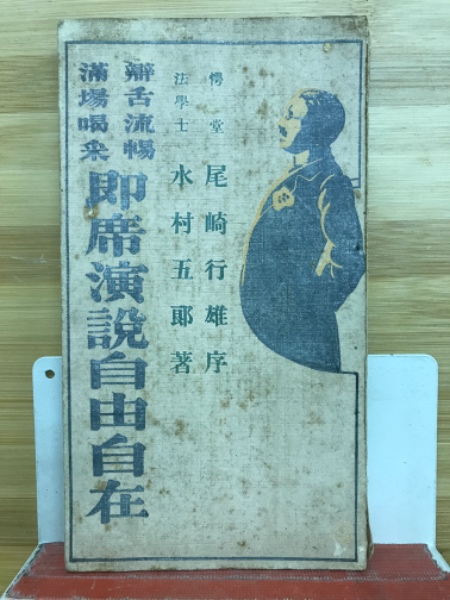 愕堂 尾崎行雄序
法學士 水村五郎著
辯舌流暢
滿場喝采
即席演說自由自在